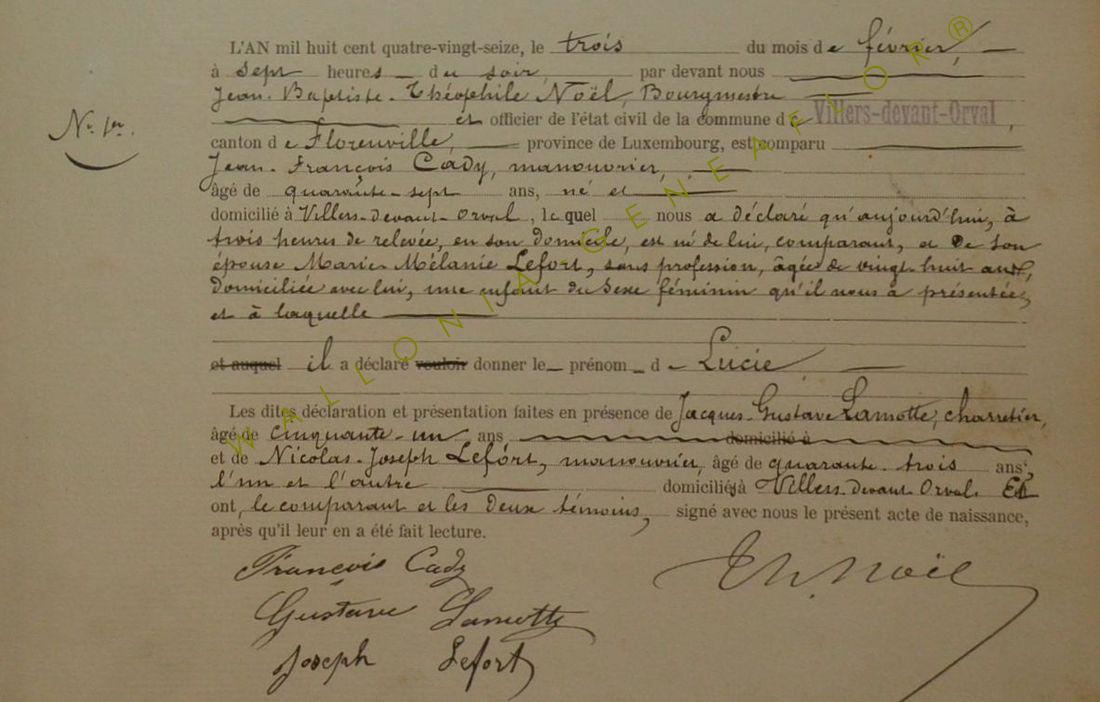 L'AN mil huit cent quatre-vingt-seize, le trois du mois de février,
à sept heures du soir, par devant nous
Jean-Baptiste-Théophile Noël, Bourgmestre
et officier de l'état civil de la commune de Villers-devant-Orval,
N° 1er.
canton de Florenville, province de Luxembourg, est comparu
Jean-François Cady, manouvrier,
âgé de quarante-sept ans, né et
domicilié à Villers-devant-Orval, lequel nous a déclaré qu'aujourd'hui, à
trois heures de relevée, en son domicile, est né de lui, comparant, et de son
épouse Marie-Mélanie Lefort, sans profession, âgée de vingt-huit ans,
domiciliée avec lui, une enfant du sexe féminin qu'il nous a présentée,
et à laquelle
et auquel il a déclaré vouloir donner le prénom de Lucie
Les dites déclaration et présentation faites en présence de Jacques-Gustave Lamotte, charretier,
âgé de cinquante-un ans domicilié à
et de Nicolas-Joseph Lefort, manouvrier, âgé de quarante-trois ans,
l'un et l'autre domiciliés à Villers-devant-Orval. Et
ont, le comparant et les deux témoins, signé avec nous le présent acte de naissance,
après qu'il leur en a été fait lecture.
François Cady
Th. Noël
Gustave Lamotte
Joseph Lefort
WALLONIA GENEAFNOR®